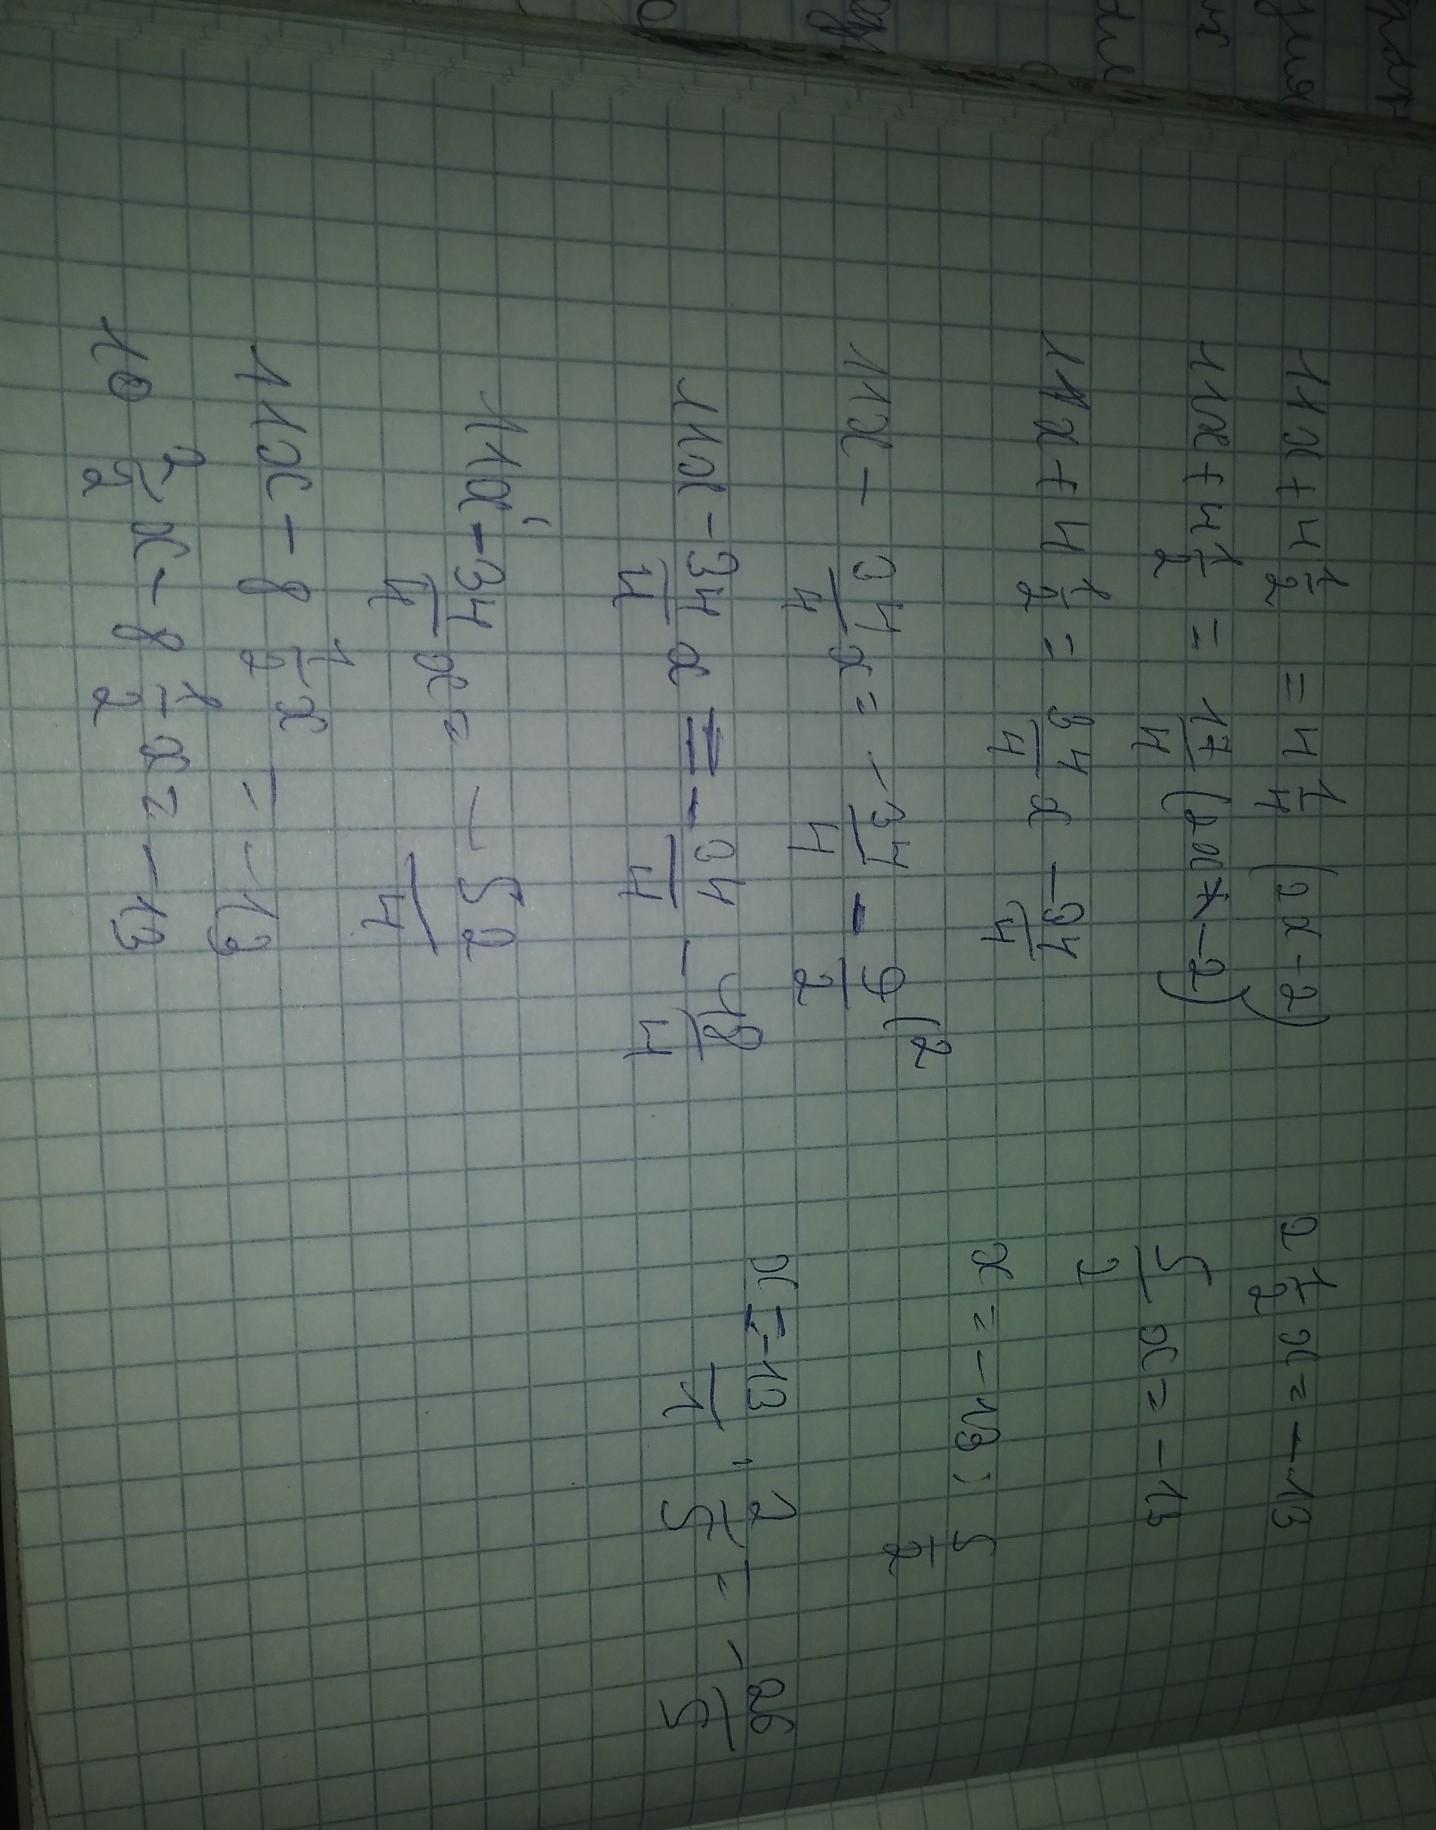 11x + 4 1/2 = 4 1/4 (2x - 2)
11x + 4 1/2 = 17/4 (2x - 2)
11x + 4 1/2 = 34/4 x - 34/4
11x - 34/4 x = - 34/4 - 9/2 (2
11x - 34/4 x = - 34/4 - 18/4
11x - 34/4 x = - 52/4
11x - 8 1/2 x = -13
10 2/2 x - 8 1/2 x = -13
2 1/2 x = -13
5/2 x = -13
x = -13 : 5/2
x = -13/1 · 2/5 = - 26/5